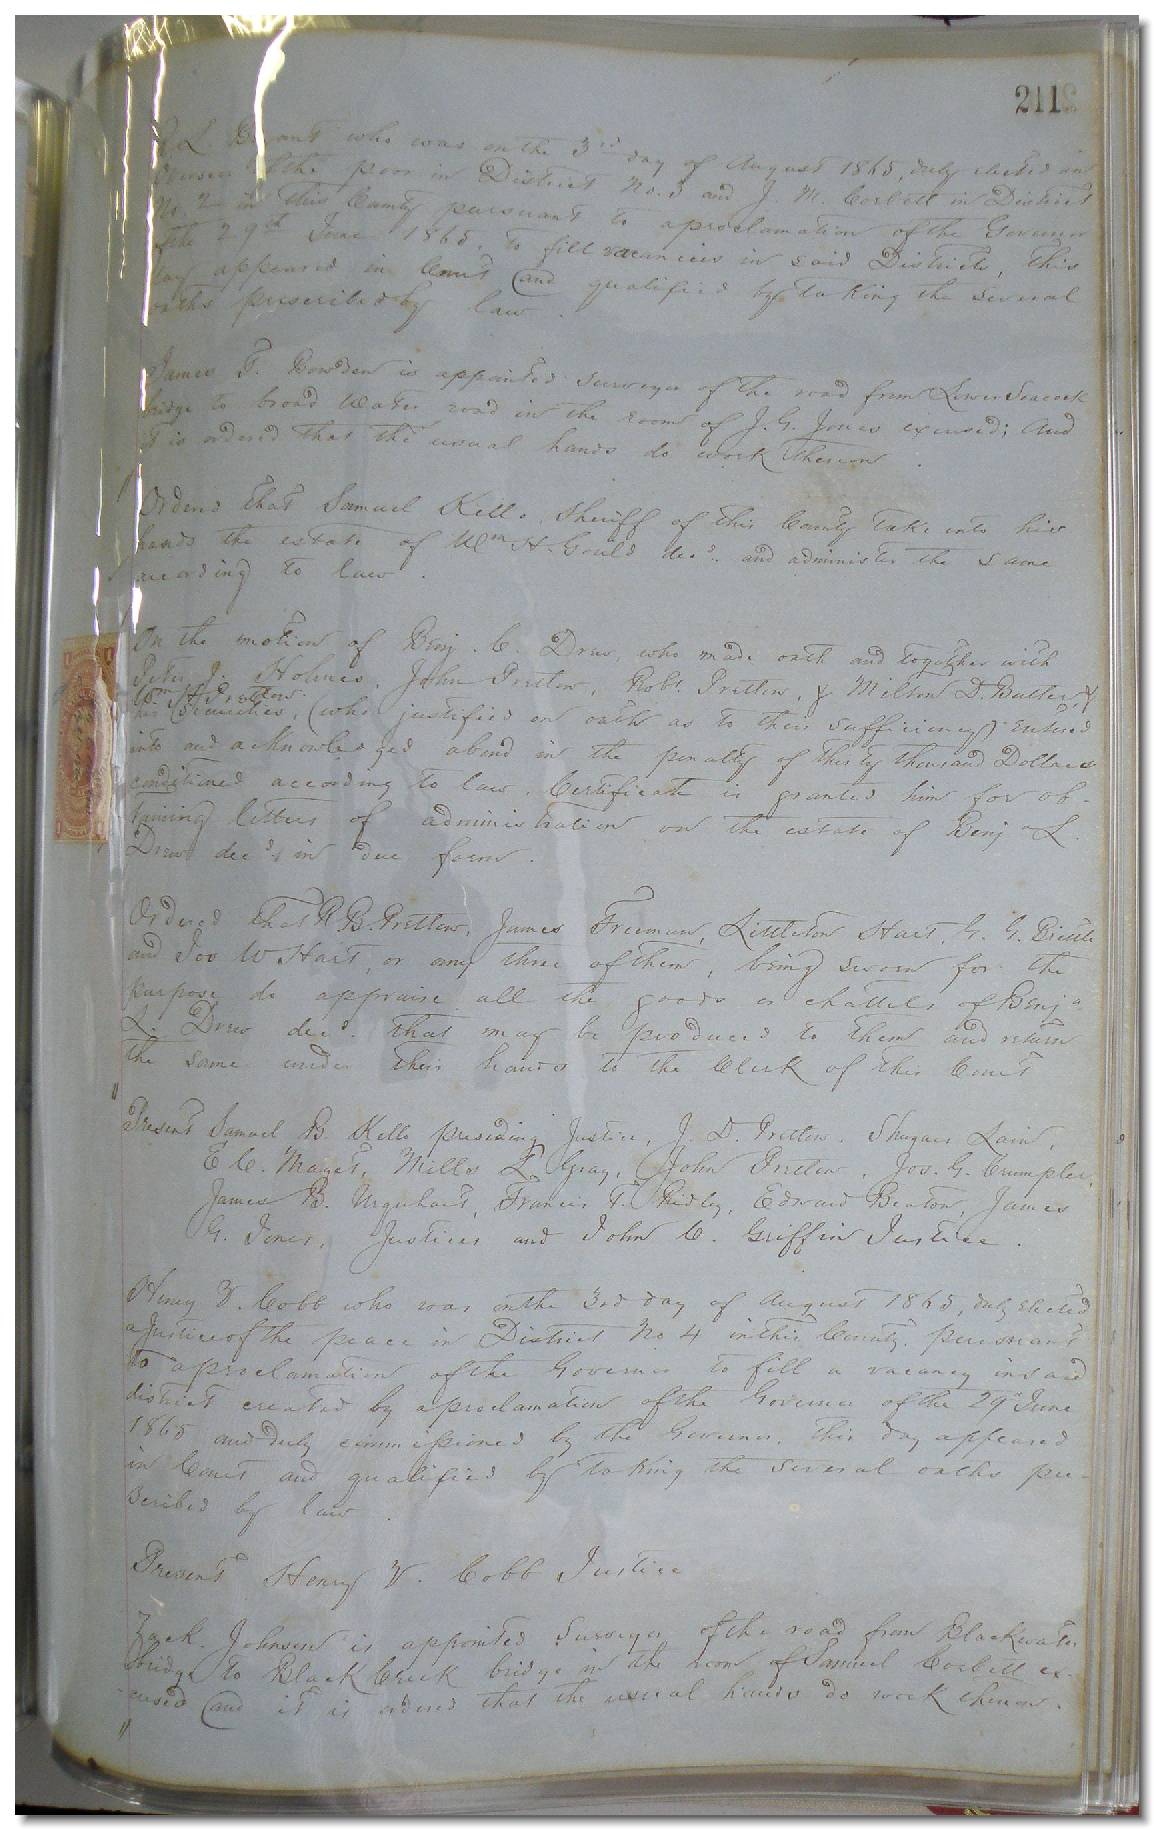 211
L. Bryant who was on the 3rd day of August 1865, duly elected an
Overseer of the poor in District No. 3 and J. M. Corbett in District
No. 2 in this County pursuant to a proclamation of the Governor
of the 29th June 1865, to fill vacancies in said Districts, this
day appeared in Court and qualified by taking the several
oaths prescribed by law.
James T. Bowden is appointed surveyor of the road from Lower Seacock
bridge to broad Water road in the room of J. G. Jones excused; And
it is ordered that the usual hands do work thereon.
Ordered that Samuel Kello, Sheriff of this County take into his
hands the estate of Wm H. Gould decd. and administer the same
according to law.
On the motion of Benj. C. Drew, who made oath and together with
Peter J. Holmes, John Pretlow, Robt. Pretlow, & Milton D. Butler, &
Wm H. Pretlow
his securities, (who justified on oath as to their sufficiency) entered
into and acknowledged a bond in the penalty of thirty thousand Dollars
conditioned according to law. Certificate is granted him for ob-
taining letters of administration on the estate of Benj L.
Drew decd, in due form.
Ordered that R B. Pretlow, James Freeman, Littleton Hart, G. G.
and Jos W Hart, or any three of them, being sworn for the
purpose do appraise all the goods or chattels of Benja
L. Drew decd. that may be produced to them and return
the same under their hands to the Clerk of this Court
Present Samuel B. Kello presiding Justice, J. D. Pretlow. Shugars Lain,
E. C. Mayet, Mills L. Gray, John Pretlow, Jos. G. Crumpler,
James B. Urquhart, Francis T. Ridley, Edward Beaton, James
G. Jones, Justices and John C. Griffin Justice.
Henry V. Cobb who was on the 3rd day of August 1865, duly elected
a Justice of the peace in District No 4 in this County pursuant
to a proclamation of the Governor to fill a vacancy in said
district created by a proclamation of the Governor of the 29th June
1865 and duly commissioned by the Governor. This day appeared
in Court and qualified by taking the several oaths pre-
scribed by law.
Present Henry V. Cobb Justice
Zack. Johnson is appointed Surveyor of the road from Blackwater
bridge to Black Creek bridge in the room of Samuel Corbett ex-
cused and it is ordered that the usual hands do work thereon.